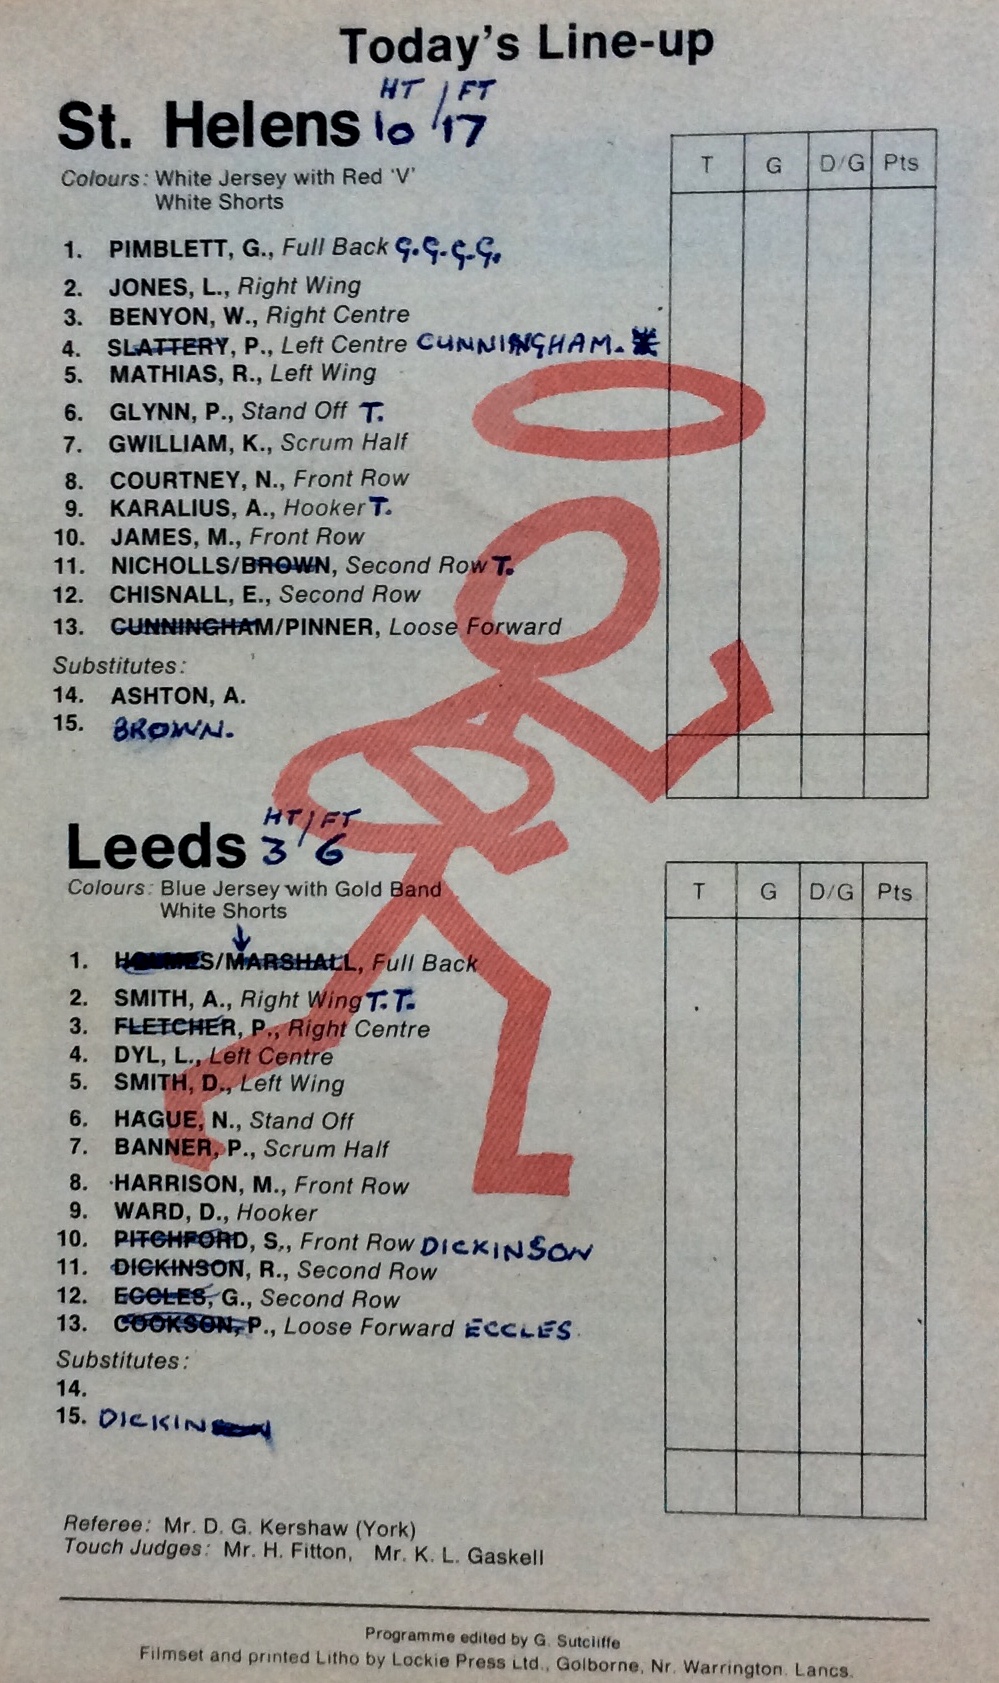 Today's Line-up
HT / FT
St. Helens 10 / 17
Colours: White Jersey with Red 'V'
White Shorts
T G D/G Pts
1. PIMBLETT, G., Full Back G.G.G.G.
2. JONES, L., Right Wing
3. BENYON, W., Right Centre
4. SLATTERY, P., Left Centre CUNNINGHAM.
5. MATHIAS, R., Left Wing
6. GLYNN, P., Stand Off T.
7. GWILLIAM, K., Scrum Half
8. COURTNEY, N., Front Row
9. KARALIUS, A., Hooker T.
10. JAMES, M., Front Row
11. NICHOLLS/BROWN, Second Row T.
12. CHISNALL, E., Second Row
13. CUNNINGHAM/PINNER, Loose Forward
Substitutes:
14. ASHTON, A.
15. BROWN.
HT / FT
Leeds 3 6
Colours: Blue Jersey with Gold Band
White Shorts
T G D/G Pts
1. HOLMES/MARSHALL, Full Back
2. SMITH, A., Right Wing T.T.
3. FLETCHER, P., Right Centre
4. DYL, L., Left Centre
5. SMITH, D., Left Wing
6. HAGUE, N., Stand Off
7. BANNER, P., Scrum Half
8. HARRISON, M., Front Row
9. WARD, D., Hooker
10. PITCHFORD, S., Front Row DICKINSON
11. DICKINSON, R., Second Row
12. ECCLES, G., Second Row
13. COOKSON, P., Loose Forward ECCLES
Substitutes:
14.
15. DICKINSON
Referee: Mr. D. G. Kershaw (York)
Touch Judges: Mr. H. Fitton, Mr. K. L. Gaskell
Programme edited by G. Sutcliffe
Filmset and printed Litho by Lockie Press Ltd., Golborne, Nr. Warrington. Lancs.